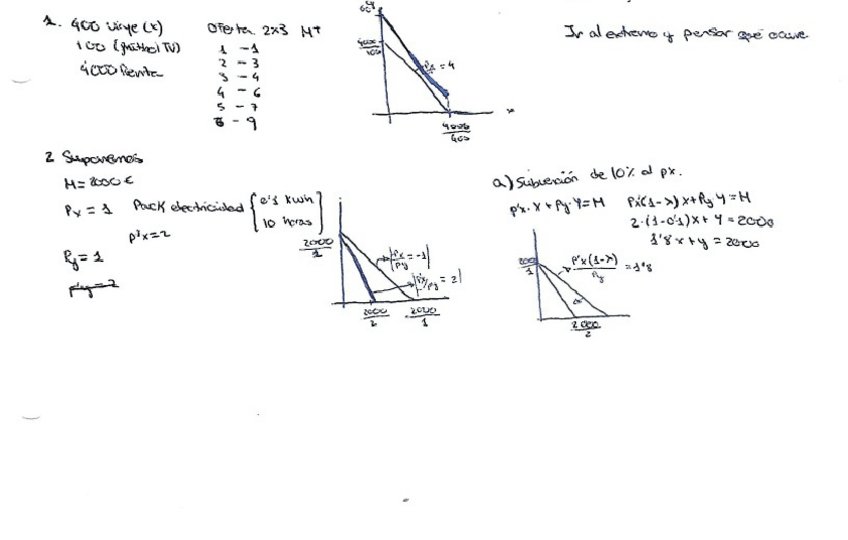 1. 400 viaje (x)
100 (
4000 Renta
Oferta 2x3
1 - 1
2 - 3
3 - 4
4 - 6
5 - 7
6 - 9
Px = 4
4000
400
x
Ir al extremo y pensar que ocurre
2 Suponemos
M = 2000 €
Px = 1
Py = 1
Pack electricidad
10 horas
p'x = 2
2000
1
Px
Py = -1
= 2
2000
2
2000
1
a) Subvención de 10% al px.
p'x · x + Py · Y = M
Px(1-λ)x + Py Y = M
2·(1-0'1)x + Y = 2000
1'8x + y = 2000
1
P'x(1-λ)
Py
= 1'8
2000
2